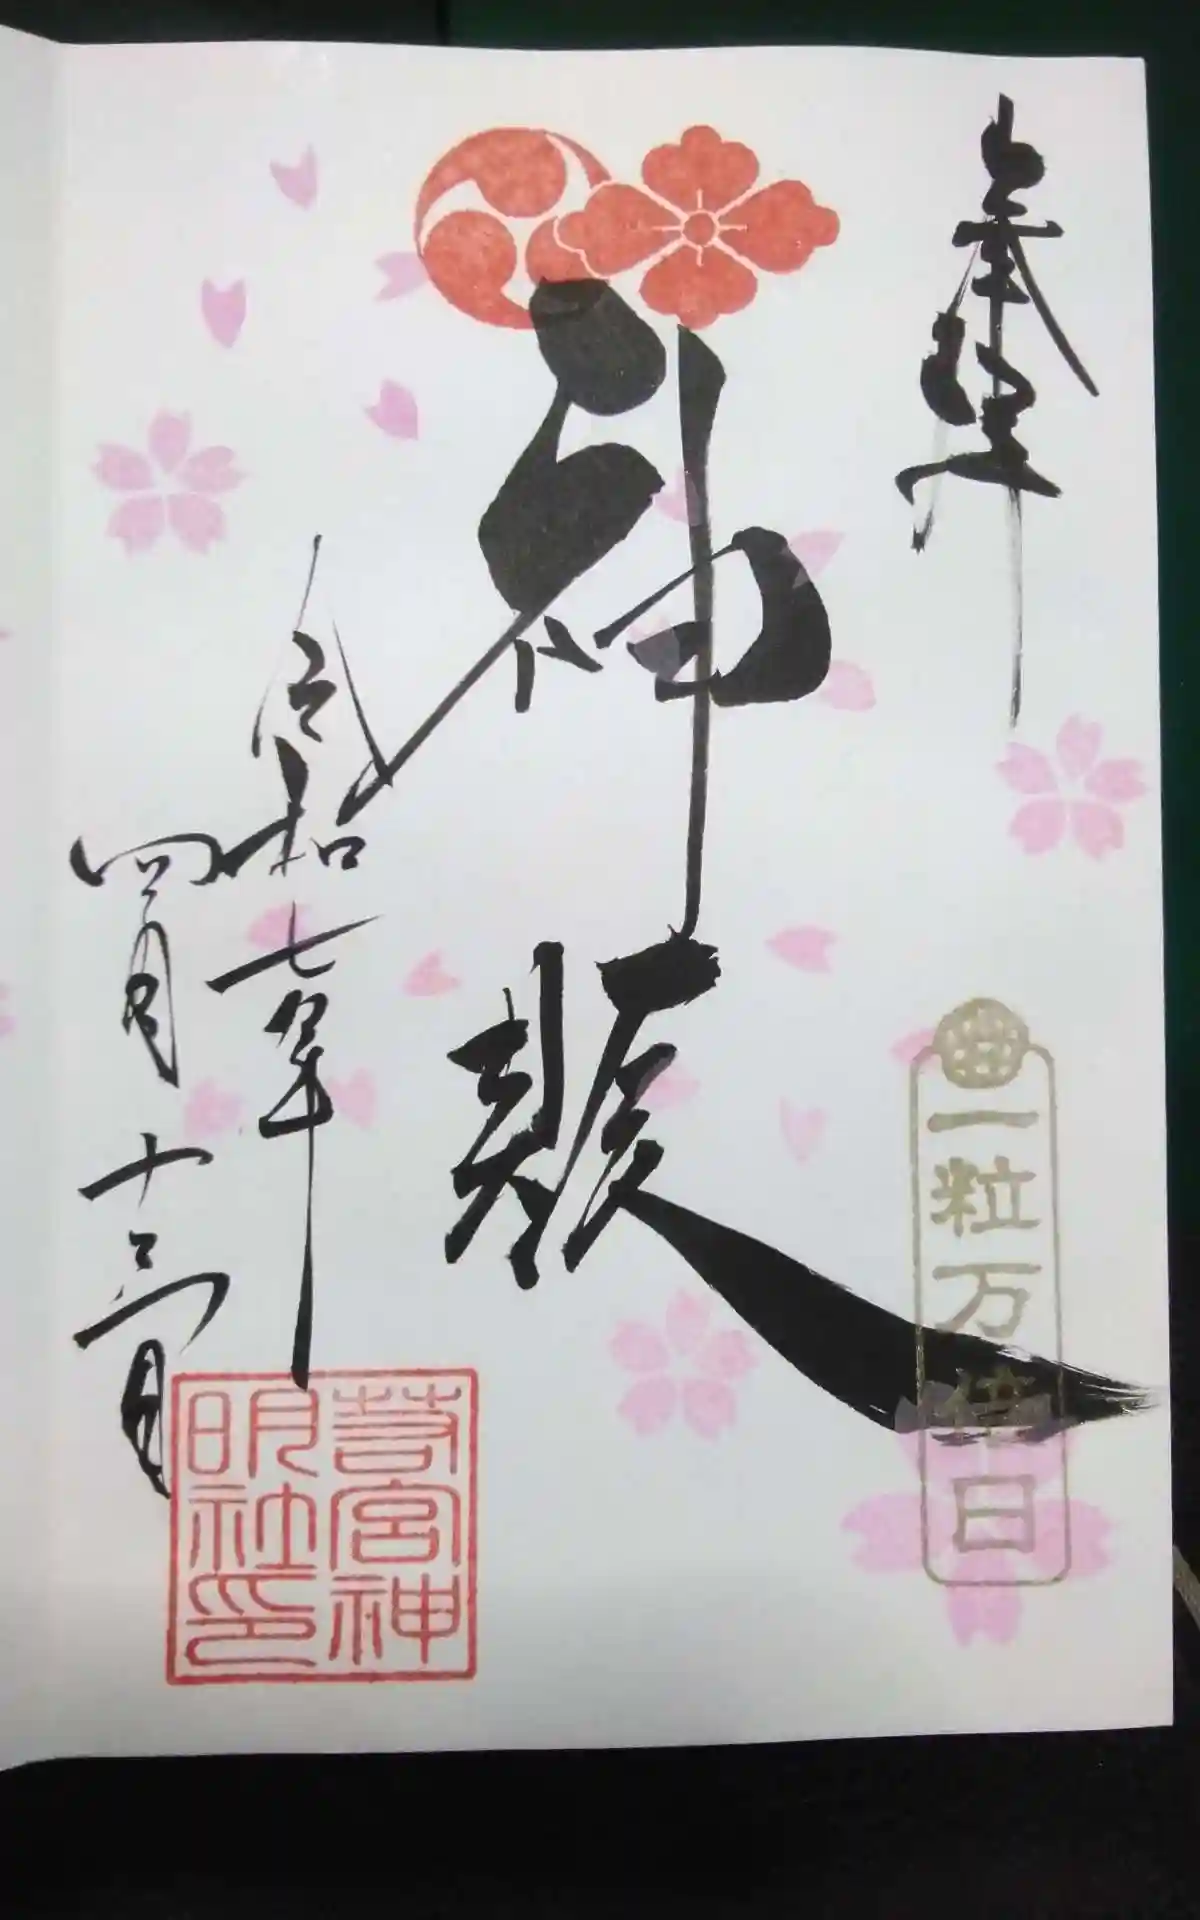 奉拝
一粒万倍日
神
令和七年
四月十三日
若宮神
明社印